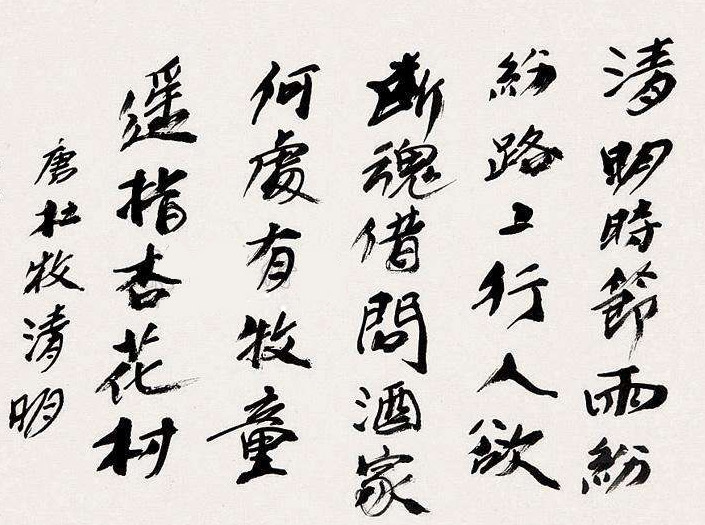 清明時節雨紛
紛路上行人欲
断魂借問酒家
何處有牧童
遥指杏花村
唐杜牧清明